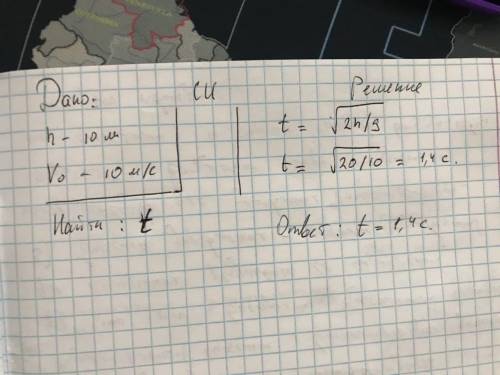 Дано:
СИ
Решение
h - 10 м
V₀ - 10 м/с
Найти : t
t = √2h/g
t = √20/10 = 1,4 с.
Ответ: t = 1,4 с.